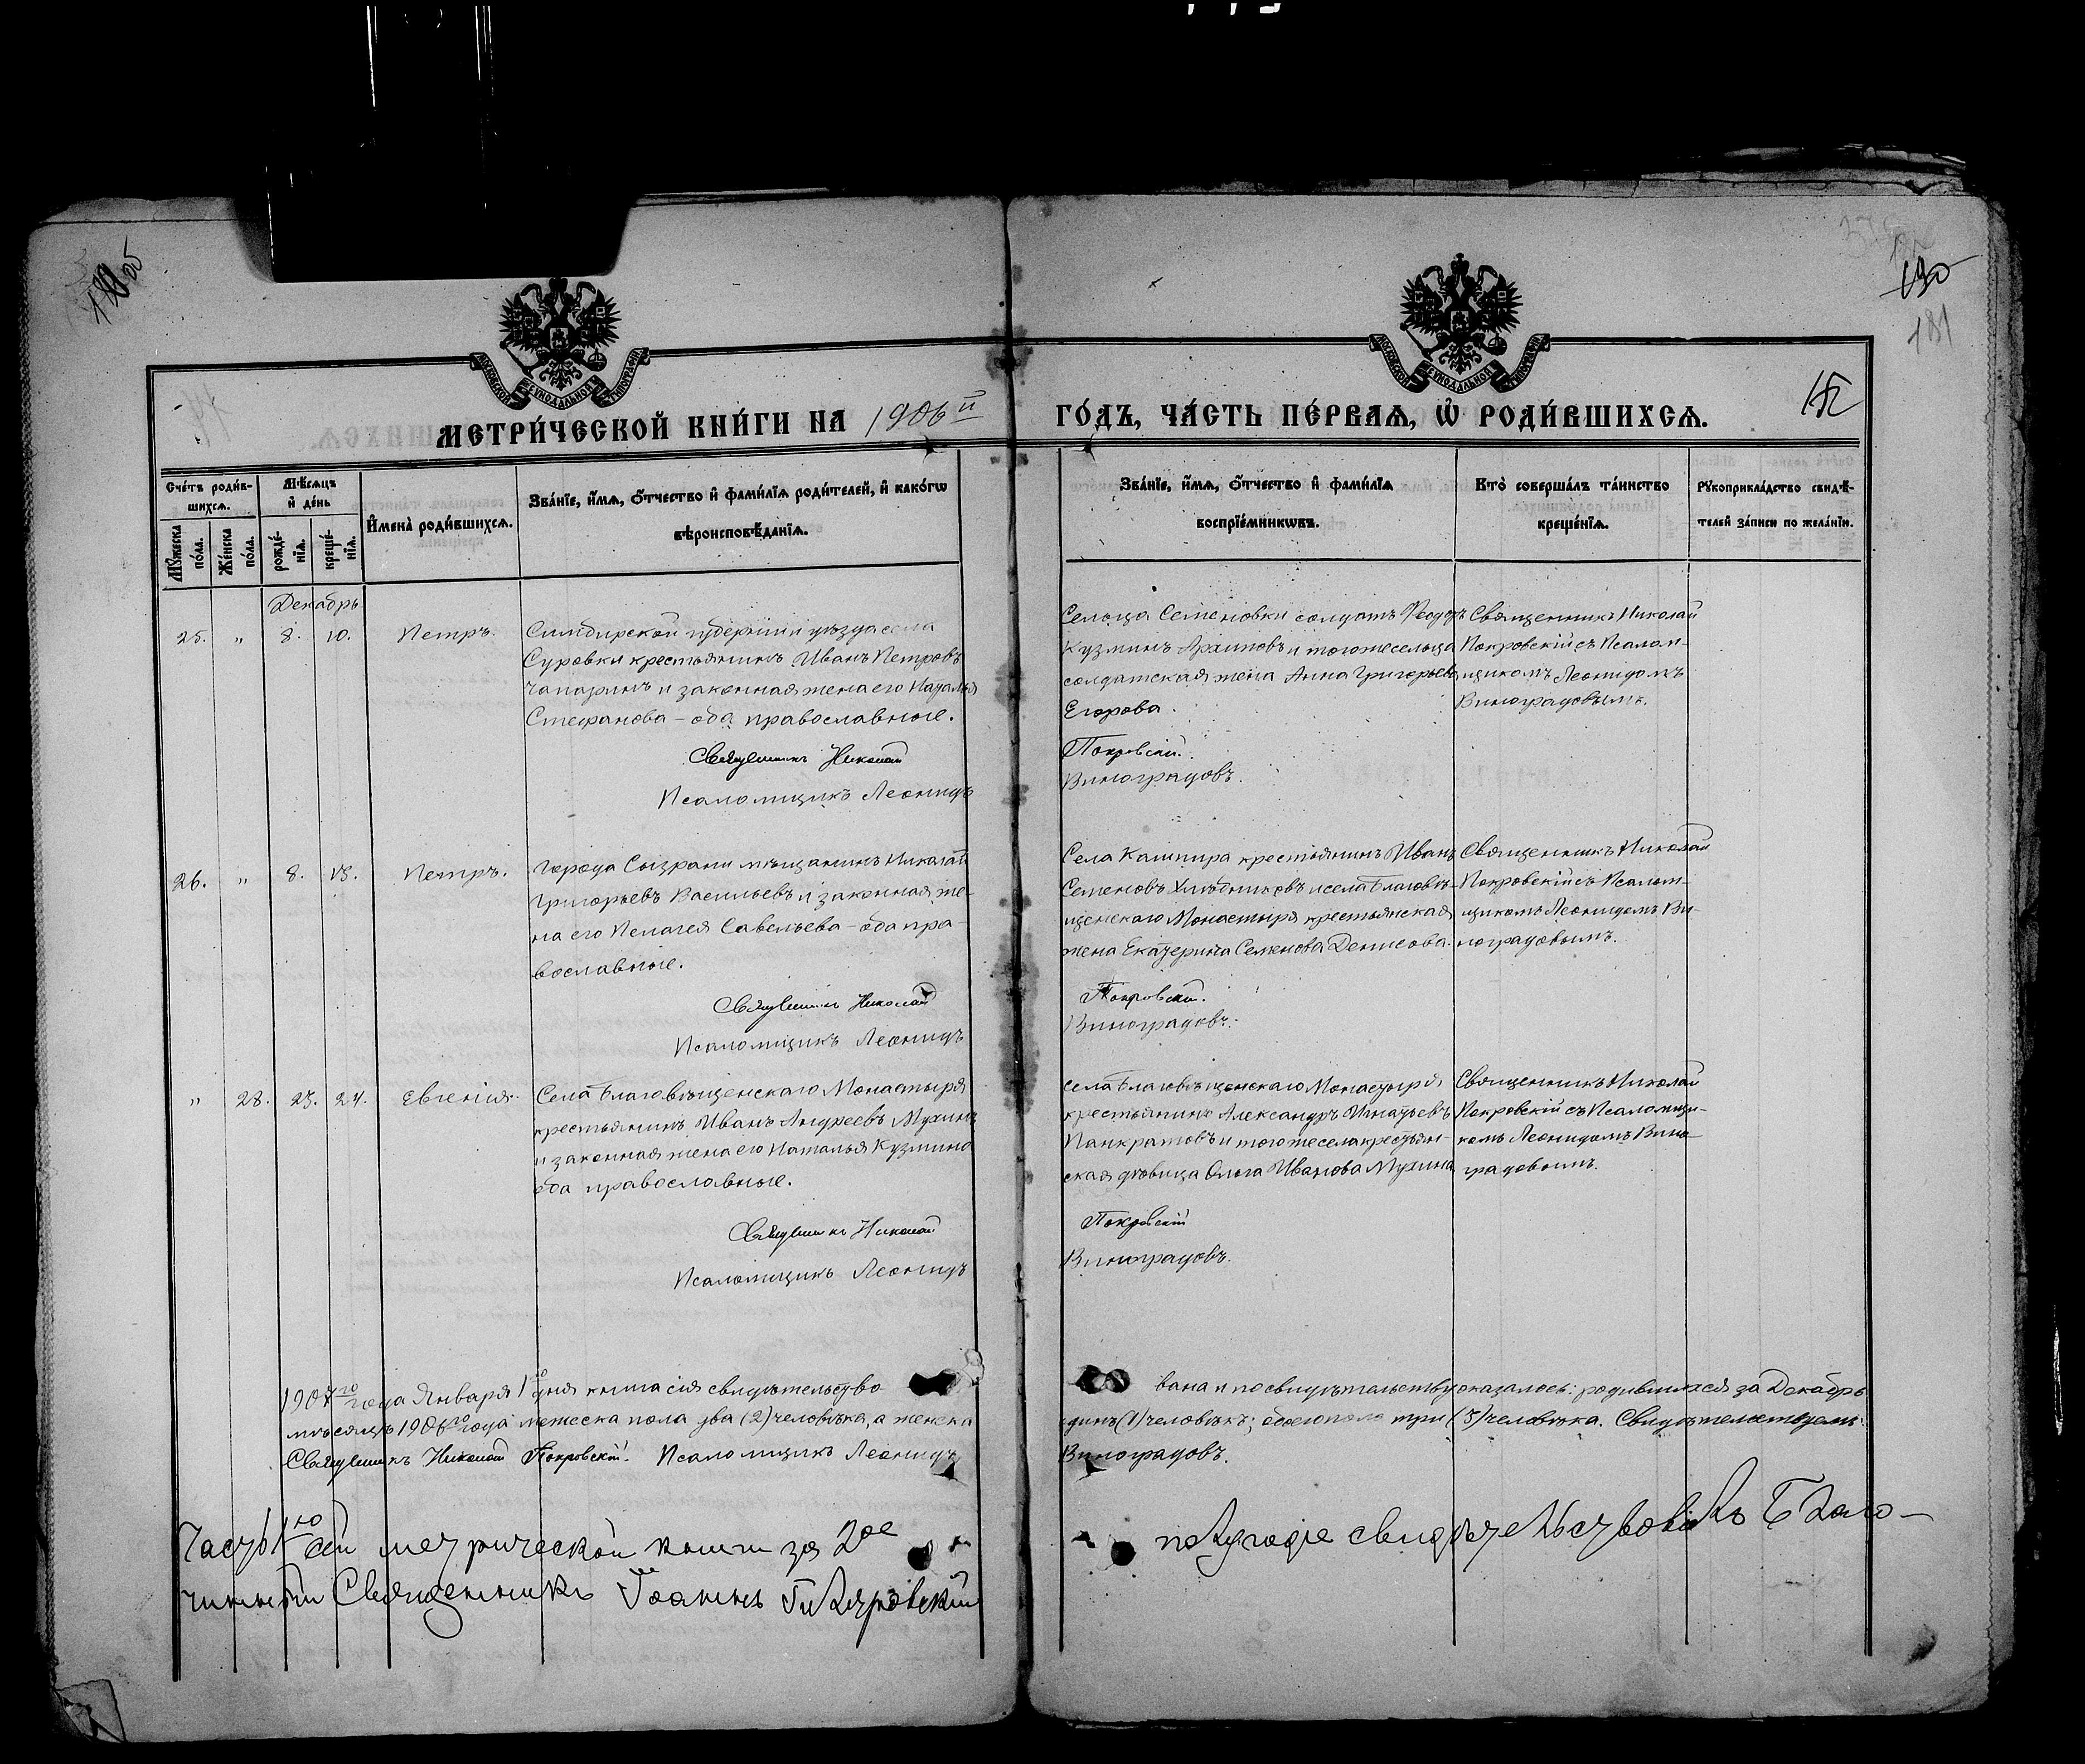 190
181
152
МЕТРИ́ЧЕСКОЙ КНИ́ГИ НА 1906 й
ГО́ДЪ, ЧА́СТЬ ПЕ́РВАѦ, Ѡ҆ РОДИ́ВШИХСѦ.
Сче́тъ роди́в-
шихсѧ.
Мѣ́сѧцъ
и҆ де́нь
Мꙋ́жеска
по́ла.
Же́нска
по́ла.
рожде́-
нїѧ.
креще́-
нїѧ.
И҆мена̀ роди́вшихсѧ.
Зва́нїе, и҆́мѧ, ѻ҆́тчество и҆ фами́лїѧ роди́телей, и҆ како́гѡ
вѣроисповѣ́данїѧ.
Зва́нїе, и҆́мѧ, ѻ҆́тчество и҆ фами́лїѧ
воспрїе́мникѡвъ.
Кто̀ соверша́лъ та́инство
креще́нїѧ.
Рꙋкоприкла́дство свидѣ́-
телей за́писи по жела́нїю.
Декабрь
25. " 8. 10. Петръ.
Симбирской губернии уѣзда села
Суровки крестьянинъ Иванъ Петровъ
Чапаринъ и законная жена его Наталья
Стефанова – оба православные.
Священникъ Николай
Псаломщикъ Леонидъ
Сельца Семеновки солдатъ Ѳеодоръ
Кузминъ Архиповъ и тогоже сельца
солдатская жена Анна Григорьева
Егорова.
Покровскій.
Виноградовъ.
Священникъ Николай
Покровскій съ Псалом-
щикомъ Леонидомъ
Виноградовымъ.
26. " 8. 13. Петръ.
Города Сызрани мѣщанинъ Николай
Григорьевъ Васильевъ и законная же-
на его Пелагея Савельева – оба пра-
вославные.
Священникъ Николай
Псаломщикъ Леонидъ
Села Кашпира крестьянинъ Иванъ
Семеновъ Хлѣбниковъ и села Благовѣ-
щенскаго Монастыря крестьянская
жена Екатерина Семенова Денисова.
Покровскій.
Виноградовъ.
Священникъ Николай
Покровскій съ Псалом-
щикомъ Леонидомъ Ви-
ноградовымъ.
" 28. 23. 24. Евгенія.
Села Благовѣщенскаго Монастыря
крестьянинъ Иванъ Андреевъ Мухинъ
и законная жена его Наталья Кузмина
оба православные.
Священникъ Николай
Псаломщикъ Леонидъ
Села Благовѣщенскаго Монастыря
крестьянинъ Александръ Игнатьевъ
Панкратовъ и тогоже села крестьян-
ская дѣвица Ольга Иванова Мухина
Покровскій
Виноградовъ.
Священникъ Николай
Покровскій съ Псаломщи-
комъ Леонидомъ Вино-
градовымъ.
1907го года Января 1го дня книга сія свидѣтельство
вана и по свидѣтельству оказалось: родившихся за Декабрь
мѣсяцъ 1906го года мужеска пола два (2) человѣка, а женска
одинъ (1) человѣкъ; обоего пола три (3) человѣка. Свидѣтельствуемъ:
Священникъ Николай Покровскій. Псаломщикъ Леонидъ
Виноградовъ.
Часть 1ю сей метрической книги за 2ое
полугодіе свидѣтельствовалъ Благо-
чинный Священникъ Іоаннъ